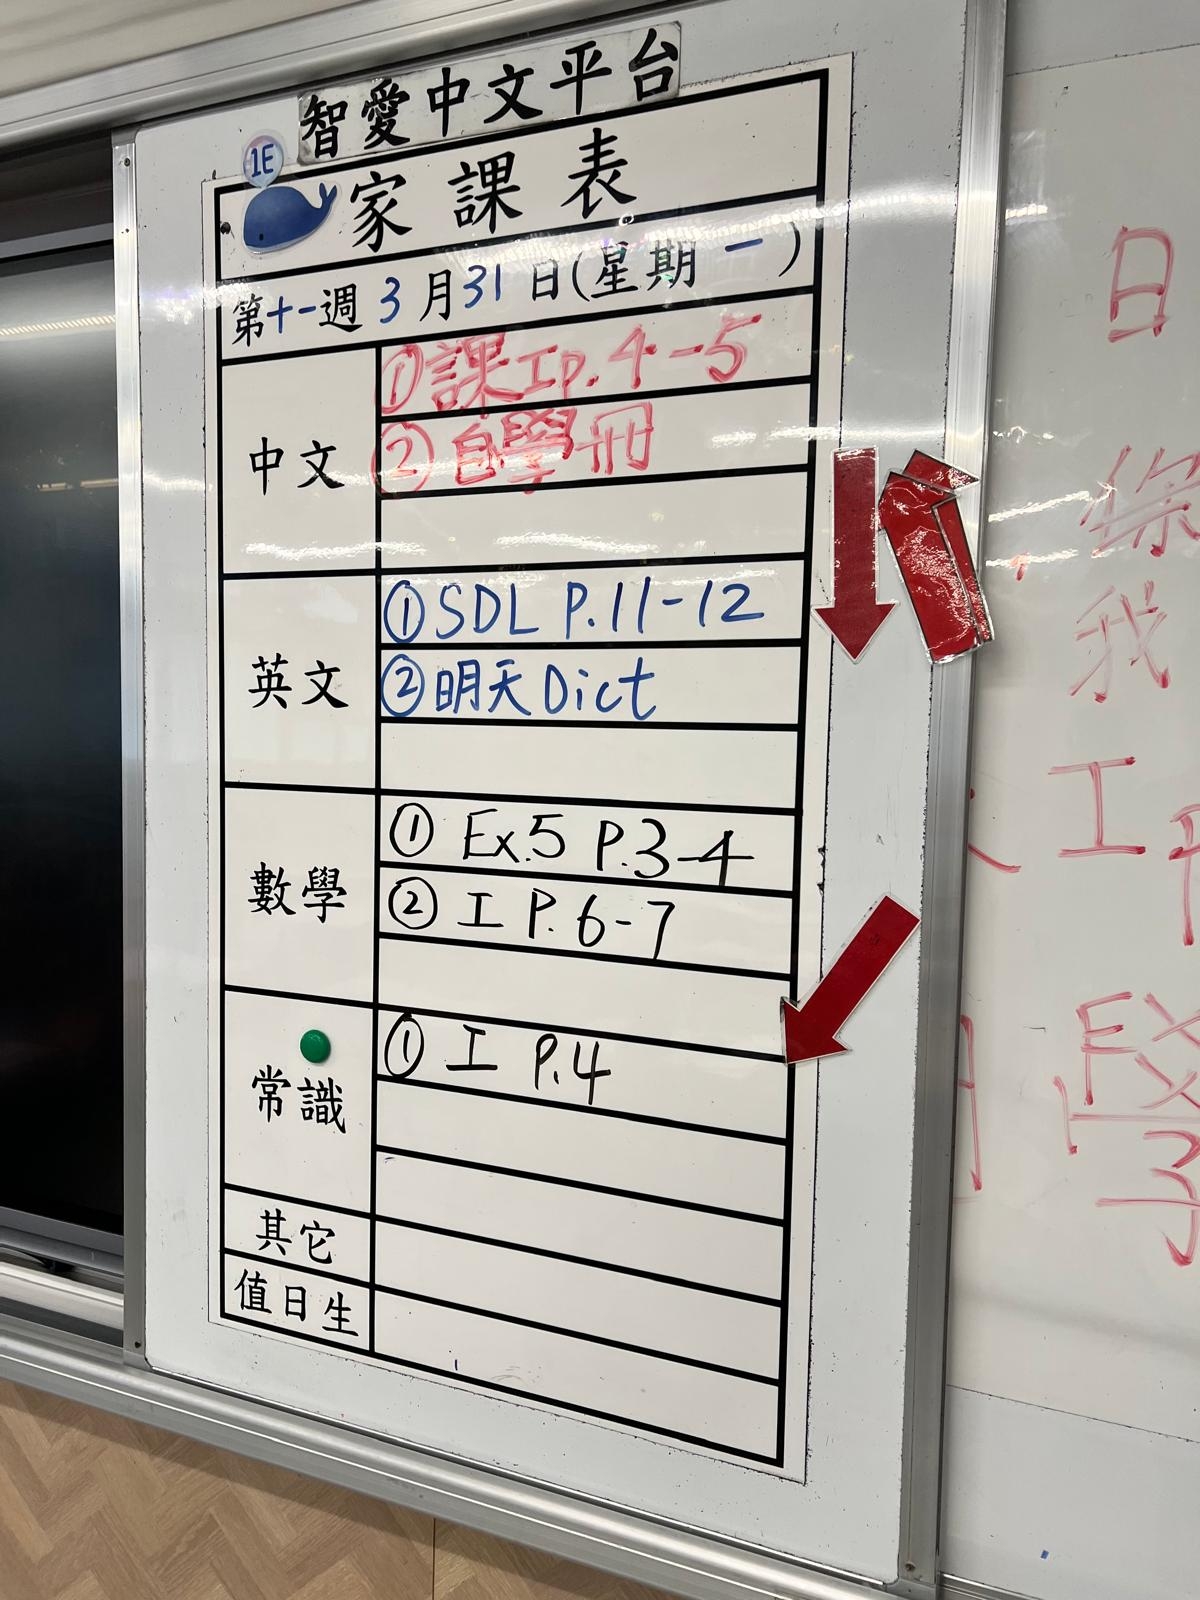 智愛中文平台
1E
家課表
第十一週 3月31日(星期一)
中文
①課工p.4-5
②自學冊
英文
①SDL P.11-12
②明天Dict
數學
① Ex.5 P.3-4
② 工 P.6-7
常識
① 工 P.4
其它
值日生
日
我
工 P
EX